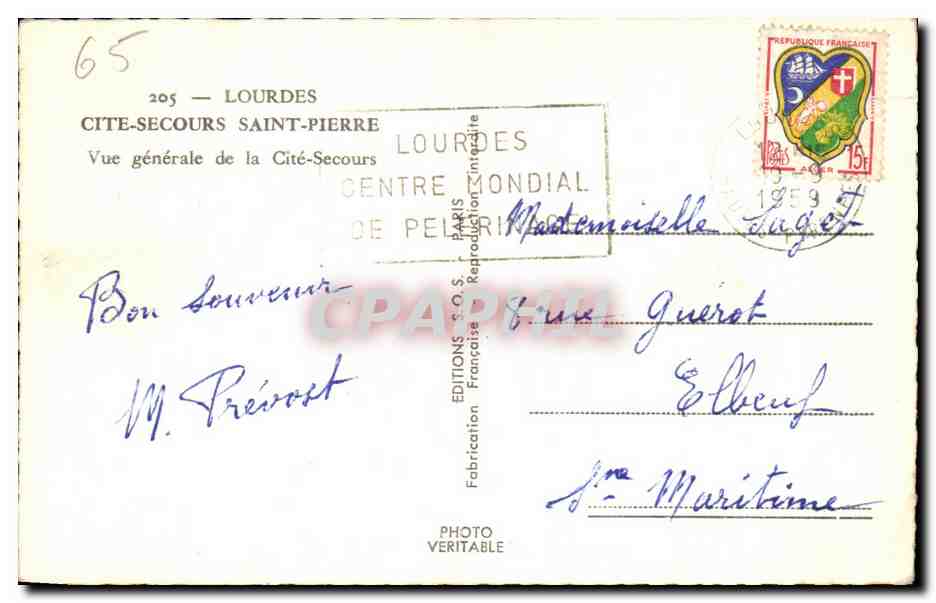 65
205 — LOURDES
CITE-SECOURS SAINT-PIERRE
Vue générale de la Cité-Secours
LOURDES
CENTRE MONDIAL
DE PELERINAGE
REPUBLIQUE FRANÇAISE
POSTES 15F
ALGER
9-9
1959
Bon Souvenir
M. Prévost
EDITIONS S.O.S. - PARIS
Fabrication Française Reproduction interdite
PHOTO
VERITABLE
CPAPHIL
Mademoiselle Saget
8 rue Guérot
Elbeuf
Sne Maritime